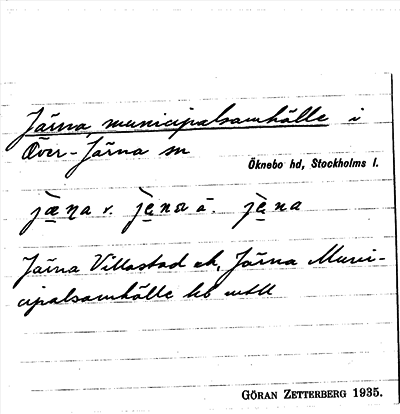 Järna, municipalsamhälle i
Över-Järna sn
Öknebo hd, Stockholms l.
jæ̀ṇa v. jè̱na ä. jè̱na
Järna Villastad ek, Järna Muni-
cipalsamhälle kb mtll
GÖRAN ZETTERBERG 1935.